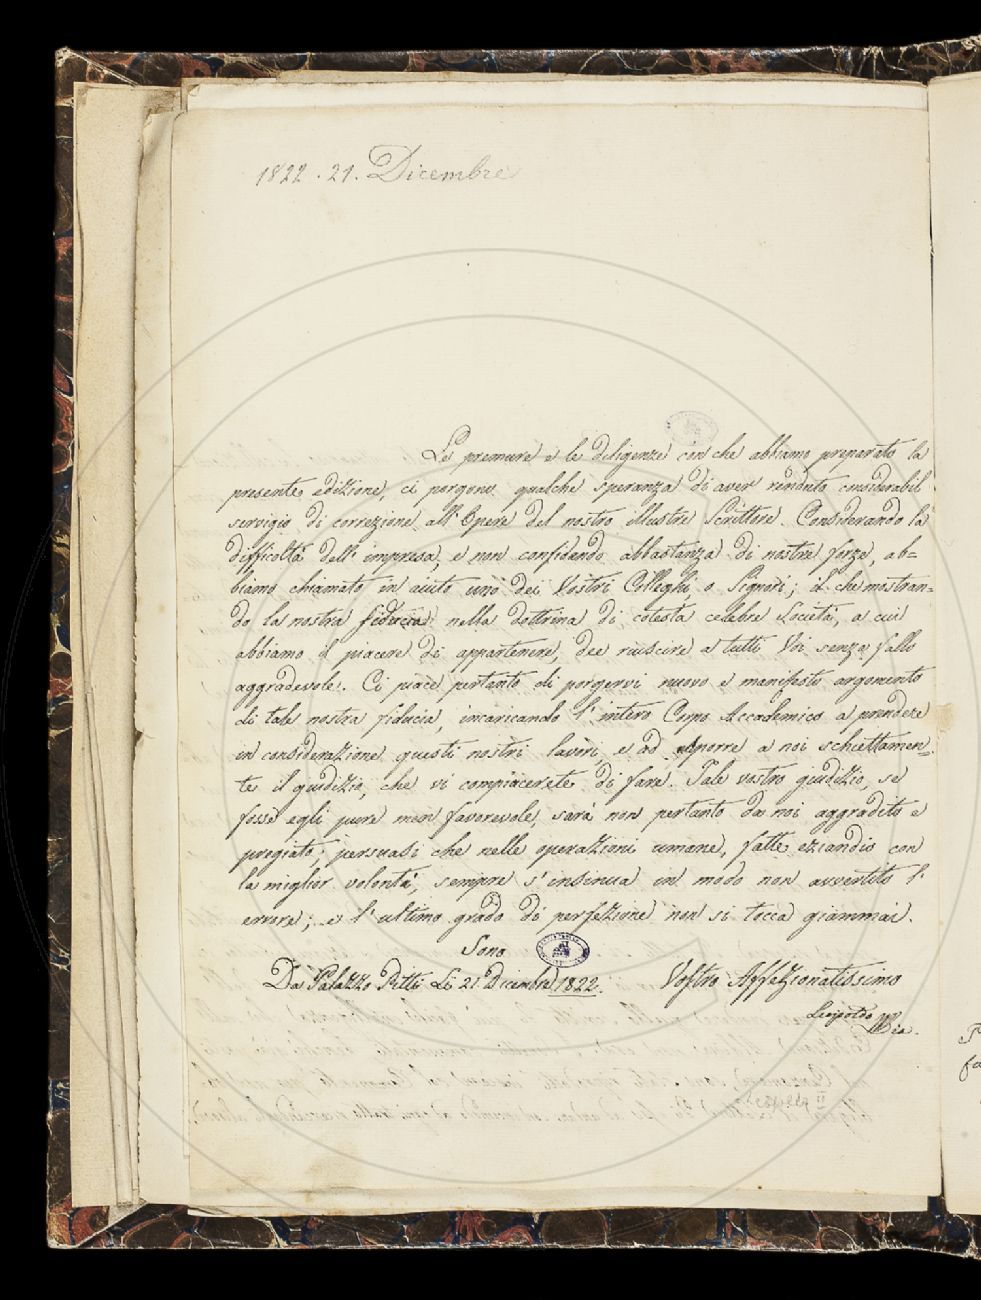 1822. 21. Dicembre
Le premure e le diligenze con che abbiamo preparato la
presente edizione, ci porgono qualche speranza di aver renduto considerabil
servigio di correzione all'Opere del nostro illustre Scrittore. Considerando la
difficoltà dell'impresa, e non confidando abbastanza di nostre forze, ab=
biamo chiamato in aiuto uno dei Vostri Colleghi, o Signori; il che mostran=
do la nostra fiducia nella dottrina di cotesta celebre Società, a cui
abbiamo il piacere di appartenere, dee riuscire a tutti Voi senza fallo
aggradevole. Ci piace pertanto di porgervi nuovo e manifesto argomento
di tale nostra fiducia, incaricando l'intero Corpo Accademico a prendere
in considerazione questi nostri lavori, e ad esporre a noi schiettamen=
te il giudizio, che vi compiacerete di fare. Tale vostro giudizio, se
fosse egli pure men favorevole, sarà non pertanto da noi aggradito e
pregiato; persuasi che nelle operazioni umane, fatte eziandio con
la miglior volontà, sempre s'insinua in modo non avvertito l'
errore; e l'ultimo grado di perfezione non si tocca giammai.
Sono
Da Palazzo Pitti Li 21 Dicembre 1822.
Vostro Affezionatissimo
Leopoldo